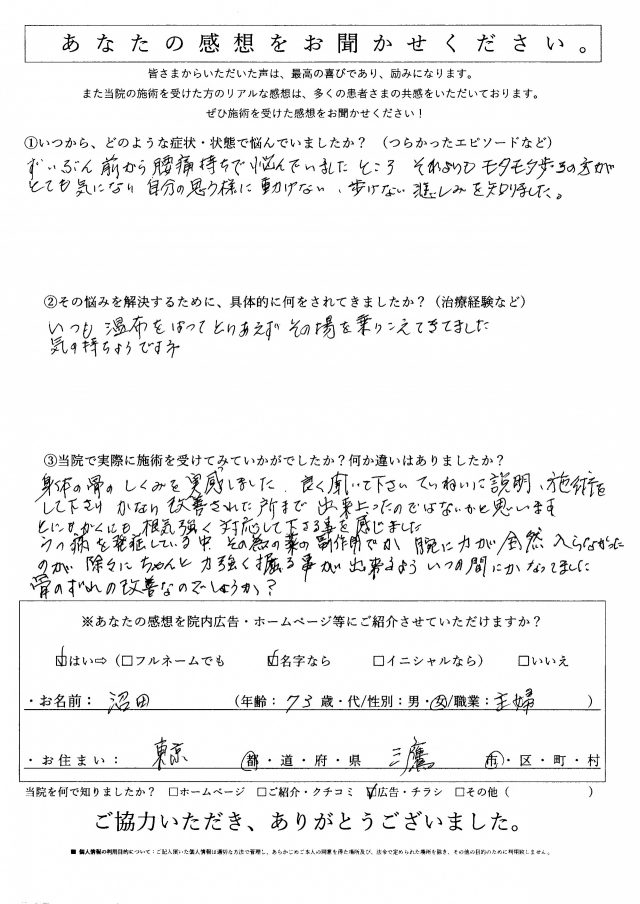 あなたの感想をお聞かせください。
皆さまからいただいた声は、最高の喜びであり、励みになります。
また当院の施術を受けた方のリアルな感想は、多くの患者さまの共感をいただいております。
ぜひ施術を受けた感想をお聞かせください！
①いつから、どのような症状・状態で悩んでいましたか？（つらかったエピソードなど）
ずいぶん前から腰痛持ちで悩んでいましたところ それよりもモタモタ歩きの方が
とても気になり 自分の思う様に動けない、歩けない悲しみを知りました。
②その悩みを解決するために、具体的に何をされてきましたか？（治療経験など）
いつも湿布をはってとりあえずその場を乗りこえてきてました
気の持ちようですネ
③当院で実際に施術を受けてみていかがでしたか？何か違いはありましたか？
身体の骨のしくみを実感しました、良く聞いて下さい ていねいに説明、施術を
して下さり かなり改善された所まで出来上ったのではないかと思います
とにもかくにも根気強く対応して下さる事を感じました
うつ病を発症している中、その為の薬の副作用でか 腕に力が全然入らなかった
のが 除々にちゃんと力強く握る事が出来るよう いつの間にかなってました
骨のずれの改善なのでしょうか？
※あなたの感想を院内広告・ホームページ等にご紹介させていただけますか？
☑はい⇨（□フルネームでも ☑名字なら □イニシャルなら） □いいえ
・お名前： 沼田 （年齢：73歳・代/性別：男・女/職業：主婦 ）
・お住まい： 東京 都・道・府・県 三鷹 市・区・町・村
当院を何で知りましたか？ □ホームページ □ご紹介・クチコミ ☑広告・チラシ □その他（ ）
ご協力いただき、ありがとうございました。
■ 個人情報の利用目的について：ご記入頂いた個人情報は適切な方法で管理し、あらかじめご本人の同意を得た場所及び、法令で定められた場所を除き、その他の目的のために利用致しません。